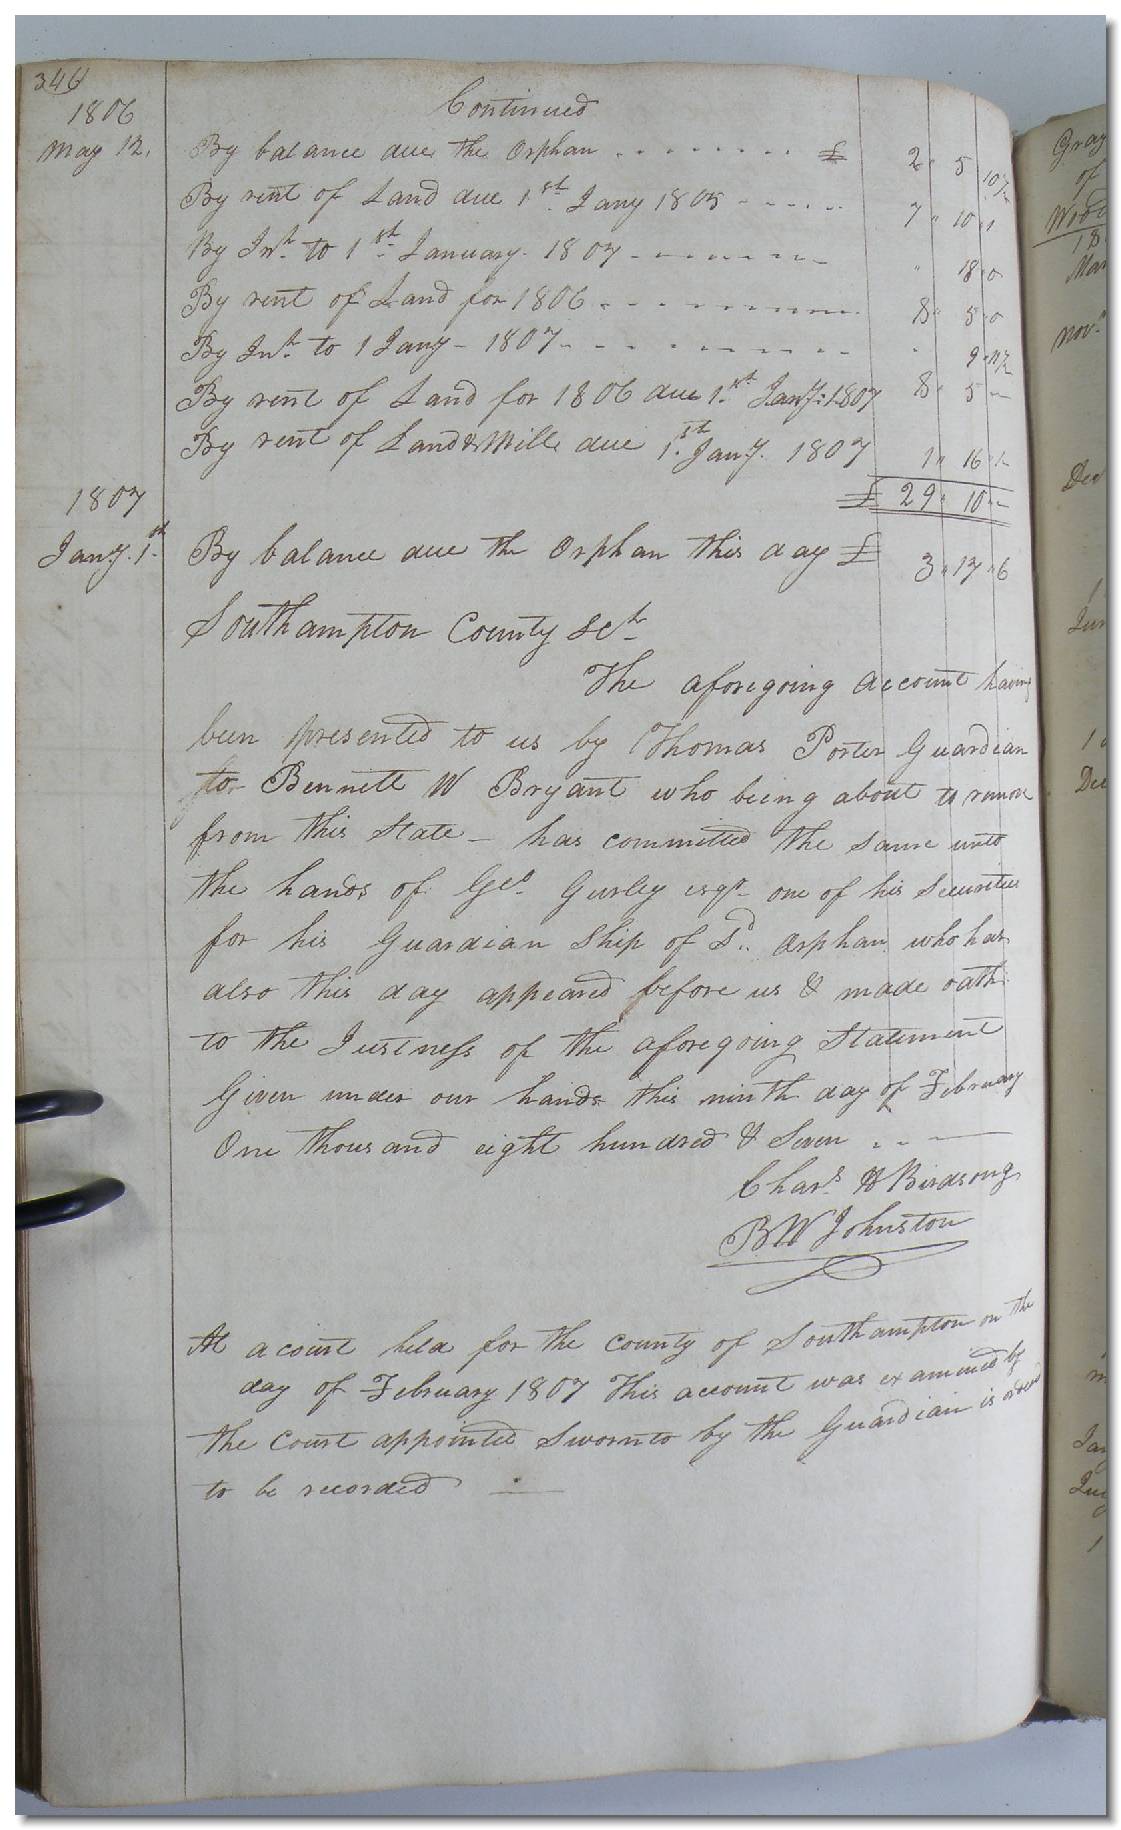 346
Continued
1806
May 12. By balance due the Orphan - - - - - - - £ 2 " 5 " 10½
By rent of Land due 1st Jany 1805 - - - - - 7 " 10 "
By Int. to 1st January. 1807 - - - - - - - " 18 " 0
By rent of Land for 1806 - - - - - - - - 8 " 5 " 0
By Int. to 1 Jany - 1807 - - - - - - - - " 9 "
By rent of Land for 1806 due 1st Jany. 1807 8 " 5 " -
By rent of Land & Mill due 1st Jany. 1807 1 " 16 "
£ 29 " 10 " -
1807
Jany. 1st By balance due the Orphan this day £ 3 " 17 " 6
Southampton County Sct
The aforegoing account having
been presented to us by Thomas Porter Guardian
to Bennett W Bryant who being about to remove
from this State - has committed the same unto
the hands of Geo. Gurley esqr one of his Securities
for his Guardian Ship of Sd. Orphan who has
also this day appeared before us & made oath
to the Justness of the aforegoing Statement
Given under our hands this ninth day of February
One thousand eight hundred & Seven - - -
Chars. H Birdsong
BW Johnston
At a court held for the county of Southampton on the
day of February 1807 This account was examined by
the Court appointed Sworn to by the Guardian is ordered
to be recorded -
Gray
of
18
Mar
Nov.
Dec
Jun
1
Dec
Jan
1